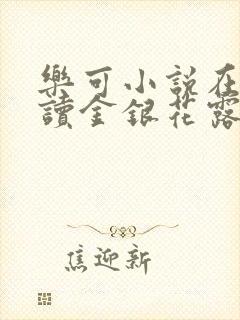 樂可小說在
讀金銀花露
焦迎新